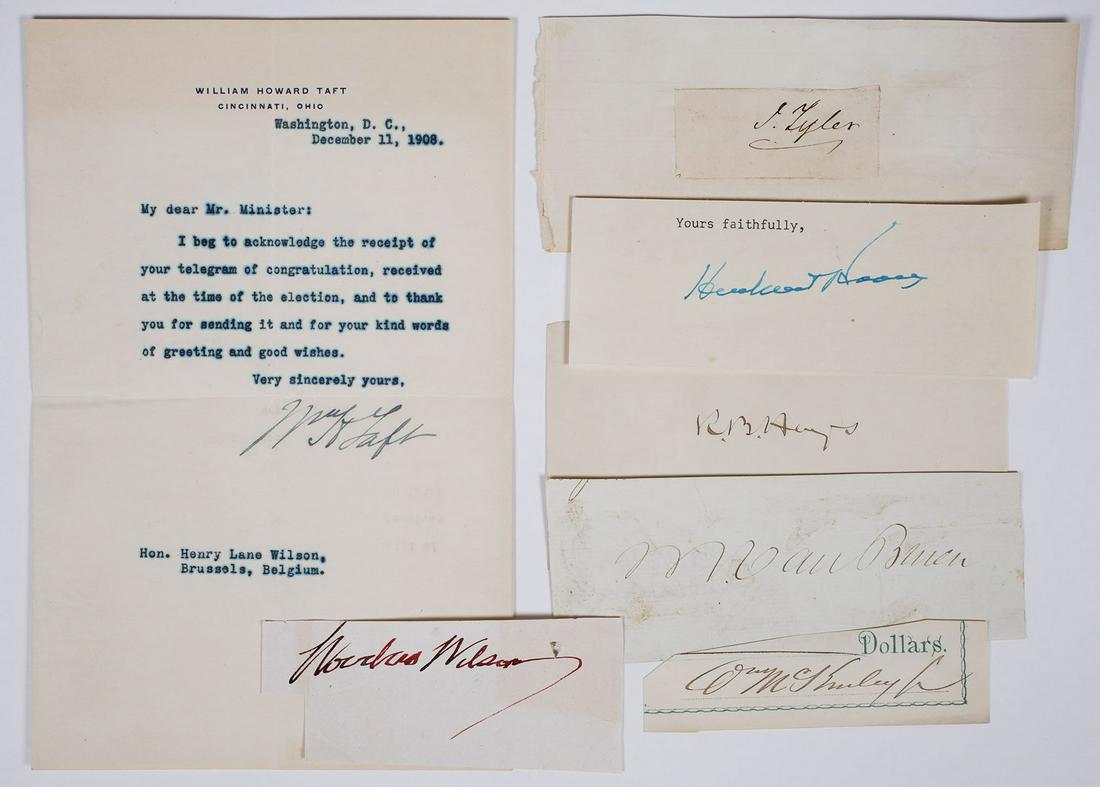 WILLIAM HOWARD TAFT
CINCINNATI, OHIO
Washington, D. C.,
December 11, 1908.
My dear Mr. Minister:
I beg to acknowledge the receipt of
your telegram of congratulation, received
at the time of the election, and to thank
you for sending it and for your kind words
of greeting and good wishes.
Very sincerely yours,
Wm H Taft
Hon. Henry Lane Wilson,
Brussels, Belgium.
Woodrow Wilson
J. Tyler
Yours faithfully,
Herbert Hoover
R. B. Hayes
M. Van Buren
Dollars.
Wm McKinley Jr